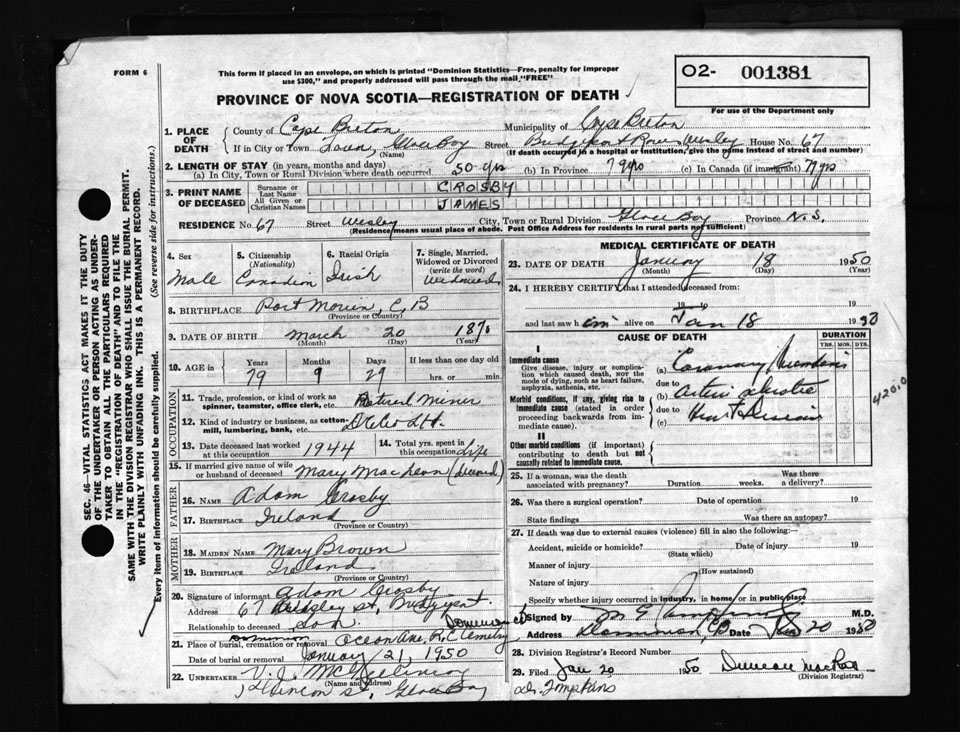 FORM 6
This form if placed in an envelope, on which is printed "Dominion Statistics—Free, penalty for improper
use $300," and properly addressed will pass through the mail "FREE"
O2- 001381
For use of the Department only
PROVINCE OF NOVA SCOTIA—REGISTRATION OF DEATH
SEC. 46—VITAL STATISTICS ACT MAKES IT THE DUTY
OF THE UNDERTAKER OR PERSON ACTING AS UNDER-
TAKER TO OBTAIN ALL THE PARTICULARS REQUIRED
IN THE "REGISTRATION OF DEATH" AND TO FILE THE
SAME WITH THE DIVISION REGISTRAR WHO SHALL ISSUE THE BURIAL PERMIT.
WRITE PLAINLY WITH UNFADING INK. THIS IS A PERMANENT RECORD.
(See reverse side for instructions.)
Every item of information should be carefully supplied.
1. PLACE OF DEATH
County of Cape Breton Municipality of Cape Breton
If in City or Town Glace Bay Street Wesley House No. 67
(Name) (If death occurred in a hospital or institution, give the name instead of street and number)
2. LENGTH OF STAY (in years, months and days)
(a) In City, Town or Rural Division where death occurred 50 yrs (b) In Province 79 yrs (c) In Canada (if immigrant) 79 yrs
3. PRINT NAME OF DECEASED
Surname or Last Name CROSBY
All Given or Christian Names JAMES
RESIDENCE No. 67 Street Wesley City, Town or Rural Division Glace Bay Province N.S.
(Residence means usual place of abode. Post Office Address for residents in rural parts not sufficient)
4. Sex
Male
5. Citizenship
(Nationality)
Canadian
6. Racial Origin
Irish
7. Single, Married,
Widowed or Divorced
(write the word)
Widowed
8. BIRTHPLACE Port Morien, C.B
(Province or Country)
9. DATE OF BIRTH March 20 1870
(Month) (Day) (Year)
10. AGE in Years Months Days If less than one day old
79 9 29 hrs. or min.
OCCUPATION
11. Trade, profession, or kind of work as
spinner, teamster, office clerk, etc. Retired Miner
12. Kind of industry or business, as cotton-
mill, lumbering, bank, etc.
13. Date deceased last worked
at this occupation 1944
14. Total yrs. spent in
this occupation Life
15. If married give name of wife
or husband of deceased Mary MacLean (Deceased)
FATHER
16. NAME Adam Crosby
17. BIRTHPLACE Ireland
(Province or Country)
MOTHER
18. MAIDEN NAME Mary Brown
19. BIRTHPLACE Ireland
(Province or Country)
20. Signature of informant Adam Crosby
Address 67 Wesley St, Bridgeport.
Relationship to deceased Son
21. Place of burial, cremation or removal Ocean Ave. R.C Cemetry Dominion
Date of burial or removal January 21, 1950
22. UNDERTAKER V. J.
(Name and address)
Union St, Glace Bay
MEDICAL CERTIFICATE OF DEATH
23. DATE OF DEATH January 18 1950
(Month) (Day) (Year)
24. I HEREBY CERTIFY that I attended deceased from:
19 to 19
and last saw him alive on Jan 18 1950
CAUSE OF DEATH
DURATION
YRS. MOS. DYS.
I
Immediate cause
Give disease, injury or complica-
tion which caused death, not the
mode of dying, such as heart failure,
asphyxia, asthenia, etc.
(a) Coronary
due to
Morbid conditions, if any, giving rise to
immediate cause (stated in order
proceeding backwards from imme-
diate cause).
(b)
due to
(c) Heart Disease
4200
II
Other morbid conditions (if important)
contributing to death but not
causally related to immediate cause.
25. If a woman, was the death
associated with pregnancy? Duration weeks. Was there
a delivery?
26. Was there a surgical operation? Date of operation 19
State findings Was there an autopsy?
27. If death was due to external causes (violence) fill in also the following:—
Accident, suicide or homicide? Date of injury 19
(State which)
Manner of injury
(How sustained)
Nature of injury
Specify whether injury occurred in industry, in home, or in public place
Signed by M. G. Tompkins M.D.
Address Dominion, CB Date Jan 20 1950
28. Division Registrar's Record Number
29. Filed Jan 20 1950 Duncan MacRae
(Division Registrar)
Dr. Tompkins